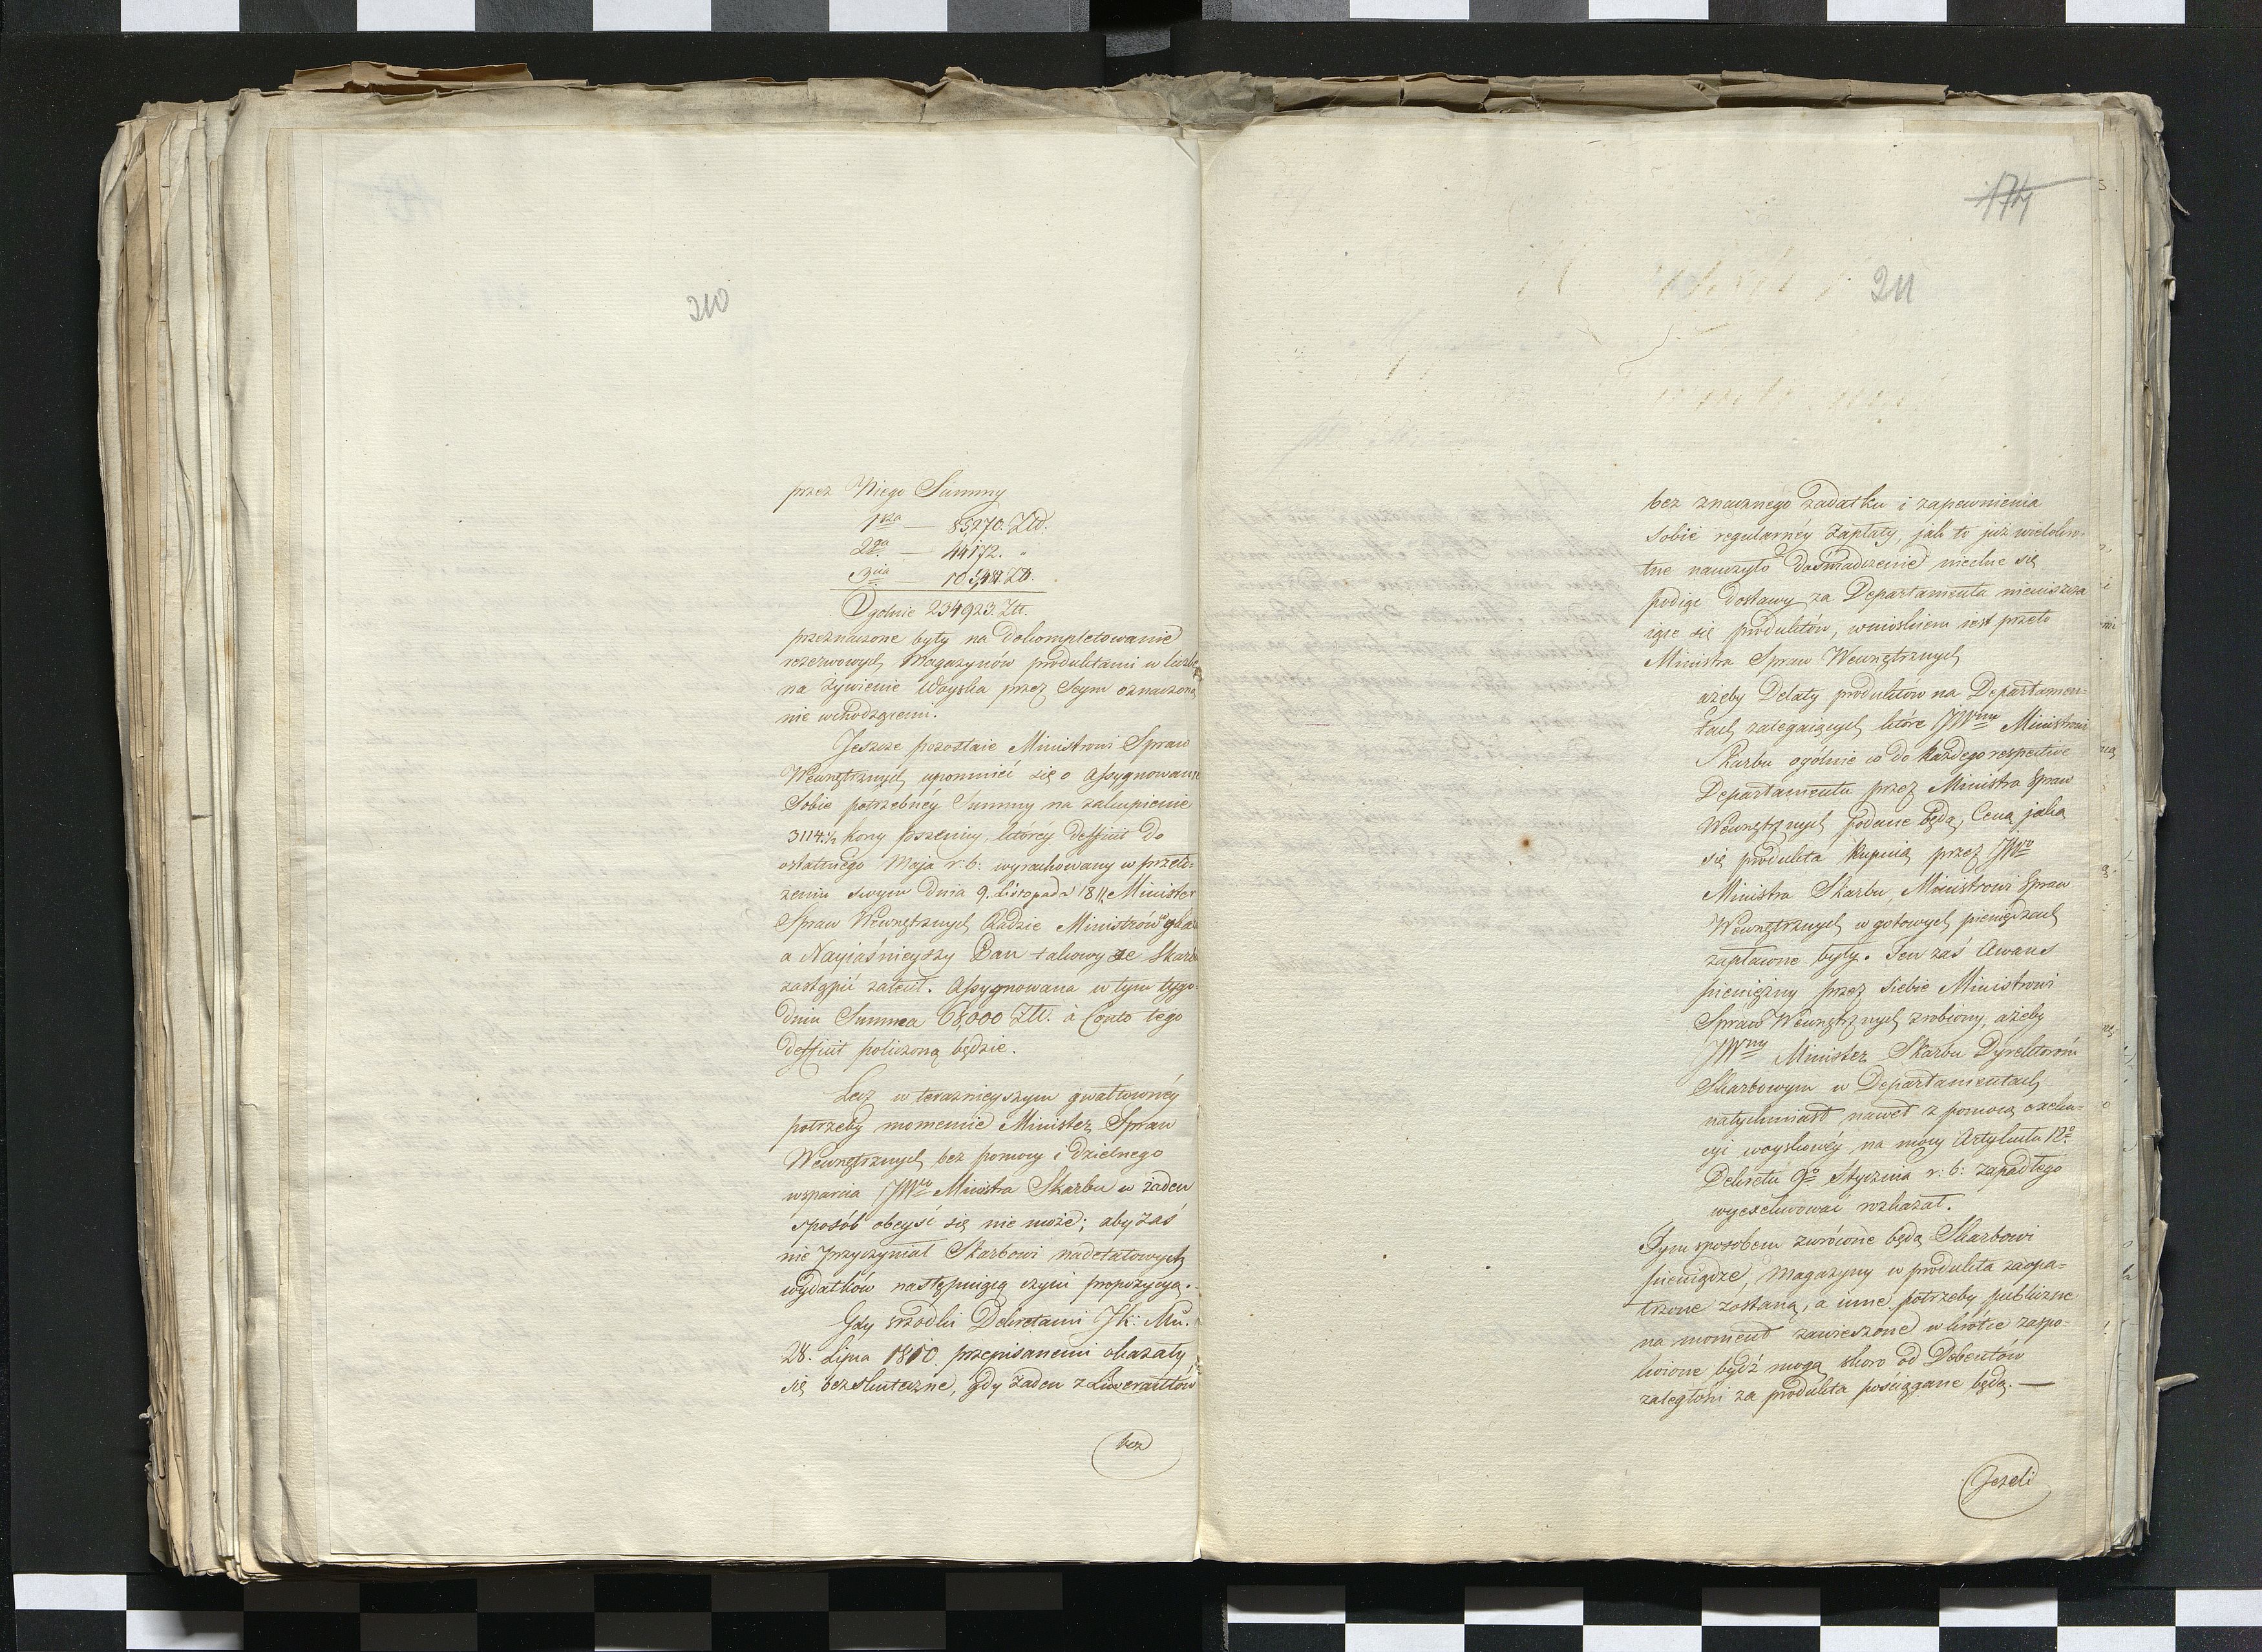 210
przez Niego Summy
1sza — 85270. Złł.
2ga — 44172. "
3cia — 105,481 Zł.
Ogolnie 234923. Złł.
przeznaczone były na dokompletowanie
rezerwowych Magazynów produktami w liczbę
na żywienie Woyska przez Seym oznaczoną
nie wchodzącemi.
Jeszcze pozostaie Ministrowi Spraw
Wewnętrznych upomnieć się o Assygnowanie
Sobie potrzebney Summy na zakupienie
3114½ kory pszenicy, którey defficit do
ostatniego Maja r: b: wyrachowany w przeło-
żeniu swym dnia 9. Listopada 1811. Minister
Spraw Wewnętrznych Radzie Ministrów
a Nayiaśnieyszy Pan takowy ze Skarbu
zastąpić zalecił. Assygnowana w tym tygo
dniu Summa 68,000 Złł. à Conto tego
defficit policzoną będzie.
Lecz w teraznieyszym gwałtowney
potrzeby momencie Minister Spraw
Wewnętrznych bez pomocy i dzielnego
wsparcia JWgo Ministra Skarbu w żaden
sposób obeyść się nie może; aby zaś
nie przyczyniał Skarbowi nadetatowych
wydatków następuiącą czyni propozycyą.
Gdy srzodki Dekretami JK: Mci.
28. Lipca 1810. przepisanemi okazały
się bezskuteczne, gdy żaden z Liwerantów
bez
174
211
bez znacznego zadatku i zapewnienia
sobie regularnéy zapłaty, jak to już wielokro-
tne nauczyło doświadczenie niechce się
podiąć dostawy za Departamenta nieuiszcza
iące się produktów, wnioskiem iest przeto
Ministra Spraw Wewnętrznych
ażeby Delaty produktów na Departamen-
tach zalegaiących które JWmu Ministrowi
Skarbu ogólnie co do każdego respective
Departamentu przez Ministra Spraw
Wewnętrznych podane będą, Ceną jaką
się produkta kupuią przez JWgo
Ministra Skarbu, Ministrowi Spraw
Wewnętrznych w gotowych pieniędzach
zapłacone były. Ten zaś Awans
pieniężny przez siebie Ministrowi
Spraw Wewnętrznych zrobiony, ażeby
JWny Minister Skarbu Dyrektorom
Skarbowym w Departamentach
natychmiast nawet z pomocą exeku-
cyi woyskowéy na mocy Artykułu 12o
Dekretu 9o Stycznia r: b: zapadłego
wyexekwować rozkazał.
Tym sposobem zwrócone będą Skarbowi
pieniądze, Magazyny w produkta zaopa-
trzone zostaną, a inne potrzeby publiczne
na moment zawieszone wkrótce zaspo-
koione bydź mogą skoro od Debentów
zaległości za produkta pościągane będą. —
Jeżeli